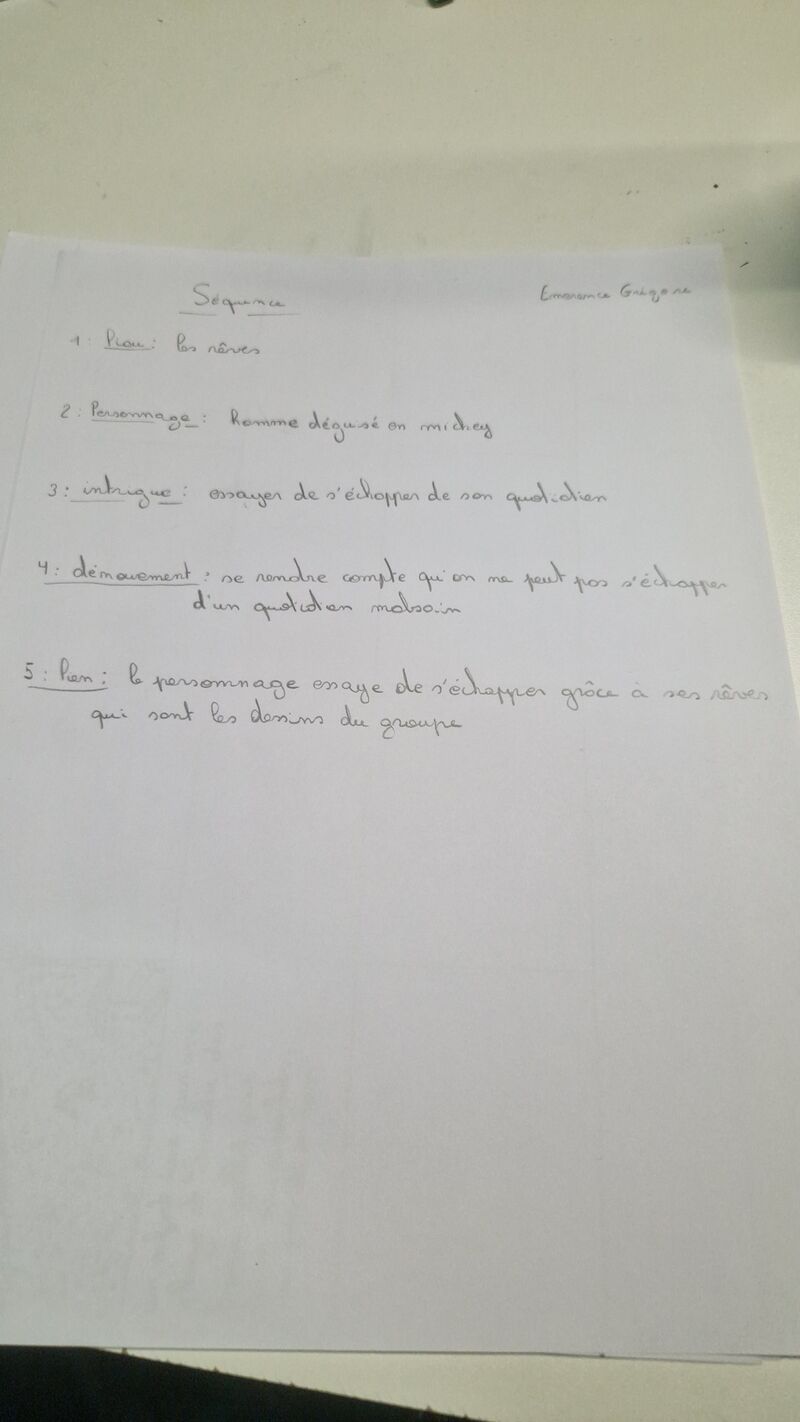 Séquence
Emerence Grégore
1: Lieu: les rêves
2: Personnage: homme dégusé en mickey
3: intrigue: essayer de s'échapper de son quotidien
4: dénouement: se rendre compte qu'on ne peut pas s'échapper
d'un quotidien malsain
5: lien: le personnage essaye de s'échapper grâce à ses rêves
qui sont les dessins du groupe